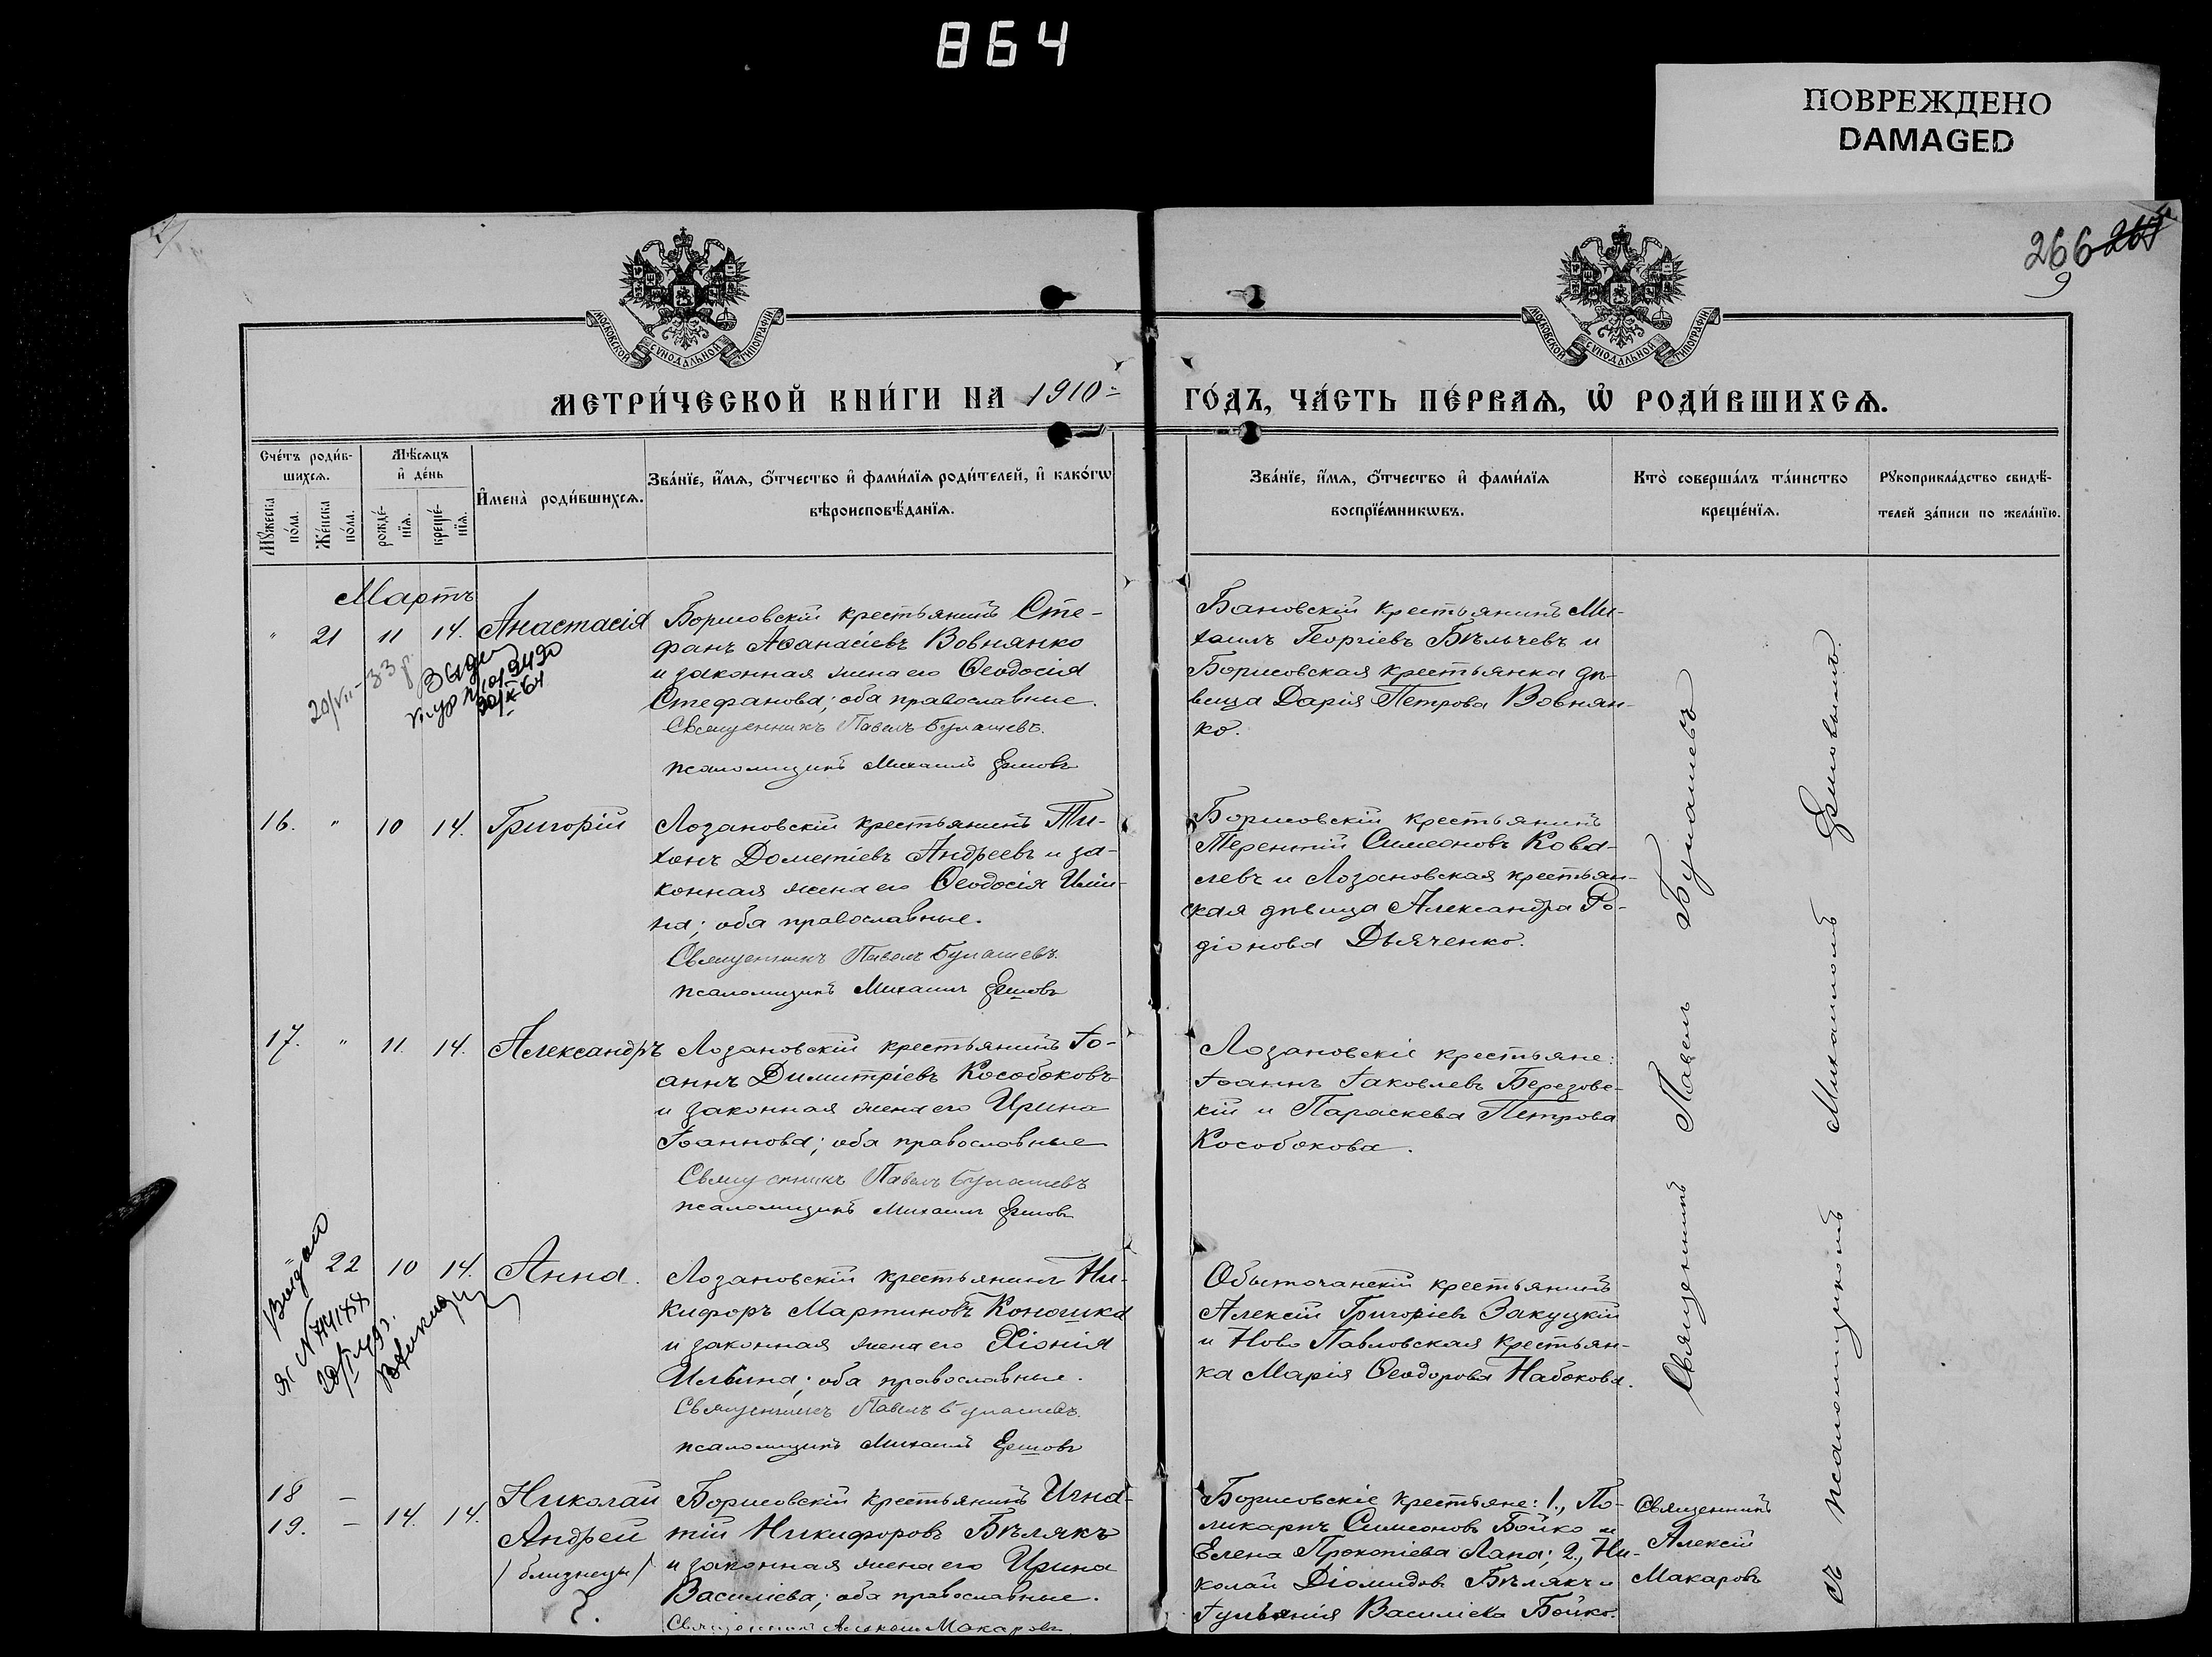 864
ПОВРЕЖДЕНО
DAMAGED
266 267
9
МОСКОВСКОЙ СѴНОДАЛЬНОЙ ТИПОГРАФІИ
МОСКОВСКОЙ СѴНОДАЛЬНОЙ ТИПОГРАФІИ
МЕТРИ́ЧЕСКОЙ КНИ́ГИ НА 1910 ГО́ДЪ, ЧА́СТЬ ПЕ́РВАѦ, Ѡ҆ РОДИ́ВШИХСѦ.
Сче́тъ роди́в-
шихсѧ.
Мꙋ́жеска
по́ла.
Же́нска
по́ла.
Мѣ́сѧцъ
и҆ де́нь
рожде́-
нїѧ.
креще́-
нїѧ.
И҆мена̀ роди́вшихсѧ.
Зва́нїе, и҆́мѧ, ѻ҆́тчество и҆ фами́лїѧ роди́телей, и҆ како́гѡ
вѣроисповѣ́данїѧ.
Зва́нїе, и҆́мѧ, ѻ҆́тчество и҆ фами́лїѧ
воспрїе́мникѡвъ.
Кто̀ соверша́лъ та́инство
креще́нїѧ.
Рꙋкоприкла́дство свидѣ́-
телей за́писи по жела́нїю.
Мартъ
" 21 11 14. Анастасія
Борисовскій крестьянинъ Сте-
фанъ Аѳанасіевъ Вовнянко
и законная жена его Ѳеодосія
Стефанова; оба православные.
Священникъ Павелъ Булашевъ.
псаломщикъ Михаилъ Ершовъ
Бановскій крестьянинъ Ми-
хаилъ Георгіевъ Бѣльчевъ и
Борисовская крестьянка дѣ-
вица Дарія Петрова Вовнян-
ко.
20/VII-33 р.
20/X-64
16. " 10 14. Григорій
Лозановскій крестьянинъ Ти-
хонъ Дометіевъ Андреевъ и за-
конная жена его Ѳеодосія Иліи-
на; оба православные.
Священникъ Павелъ Булашевъ.
псаломщикъ Михаилъ Ершовъ
Борисовскій крестьянинъ
Терентій Симеоновъ Кова-
левъ и Лозановская крестьян-
ская дѣвица Александра Ро-
діонова Дьяченко.
17. " 11. 14. Александръ
Лозановскій крестьянинъ Іо-
аннъ Димитріевъ Кособоковъ
и законная жена его Ирина
Іоаннова; оба православные
Священникъ Павелъ Булашевъ
псаломщикъ Михаилъ Ершовъ
Лозановскіе крестьяне:
Іоаннъ Іаковлевъ Березовс-
кій и Параскева Петрова
Кособокова.
" 22 10 14. Анна.
Лозановскій крестьянинъ Ни-
кифоръ Мартиновъ Коношка
и законная жена его Хіонія
Ильина; оба православные.
Священникъ Павелъ Булашевъ.
псаломщикъ Михаилъ Ершовъ
Обыточанскій крестьянинъ
Алексій Григоріевъ Закуцкій
и Ново Павловская крестьян-
ка Марія Ѳеодорова Набокова.
18 — Николай
19. — 14. 14. Андрей
/близнецы/
Борисовскій крестьянинъ Игна-
тій Никифоровъ Бѣлякъ
и законная жена его Ирина
Василіева; оба православные.
Священникъ Алексій Макаровъ
Борисовскіе крестьяне: 1., По-
ликарпъ Симеоновъ Бойко и
Елена Прокопіева Лапа; 2., Ни-
колай Діомидовъ Бѣлякъ и
Іуліанія Василіева Бойко.
Священникъ
Алексій
Макаровъ
Священникъ Павелъ Булашевъ
съ псаломщикомъ Михаиломъ Ершовымъ.